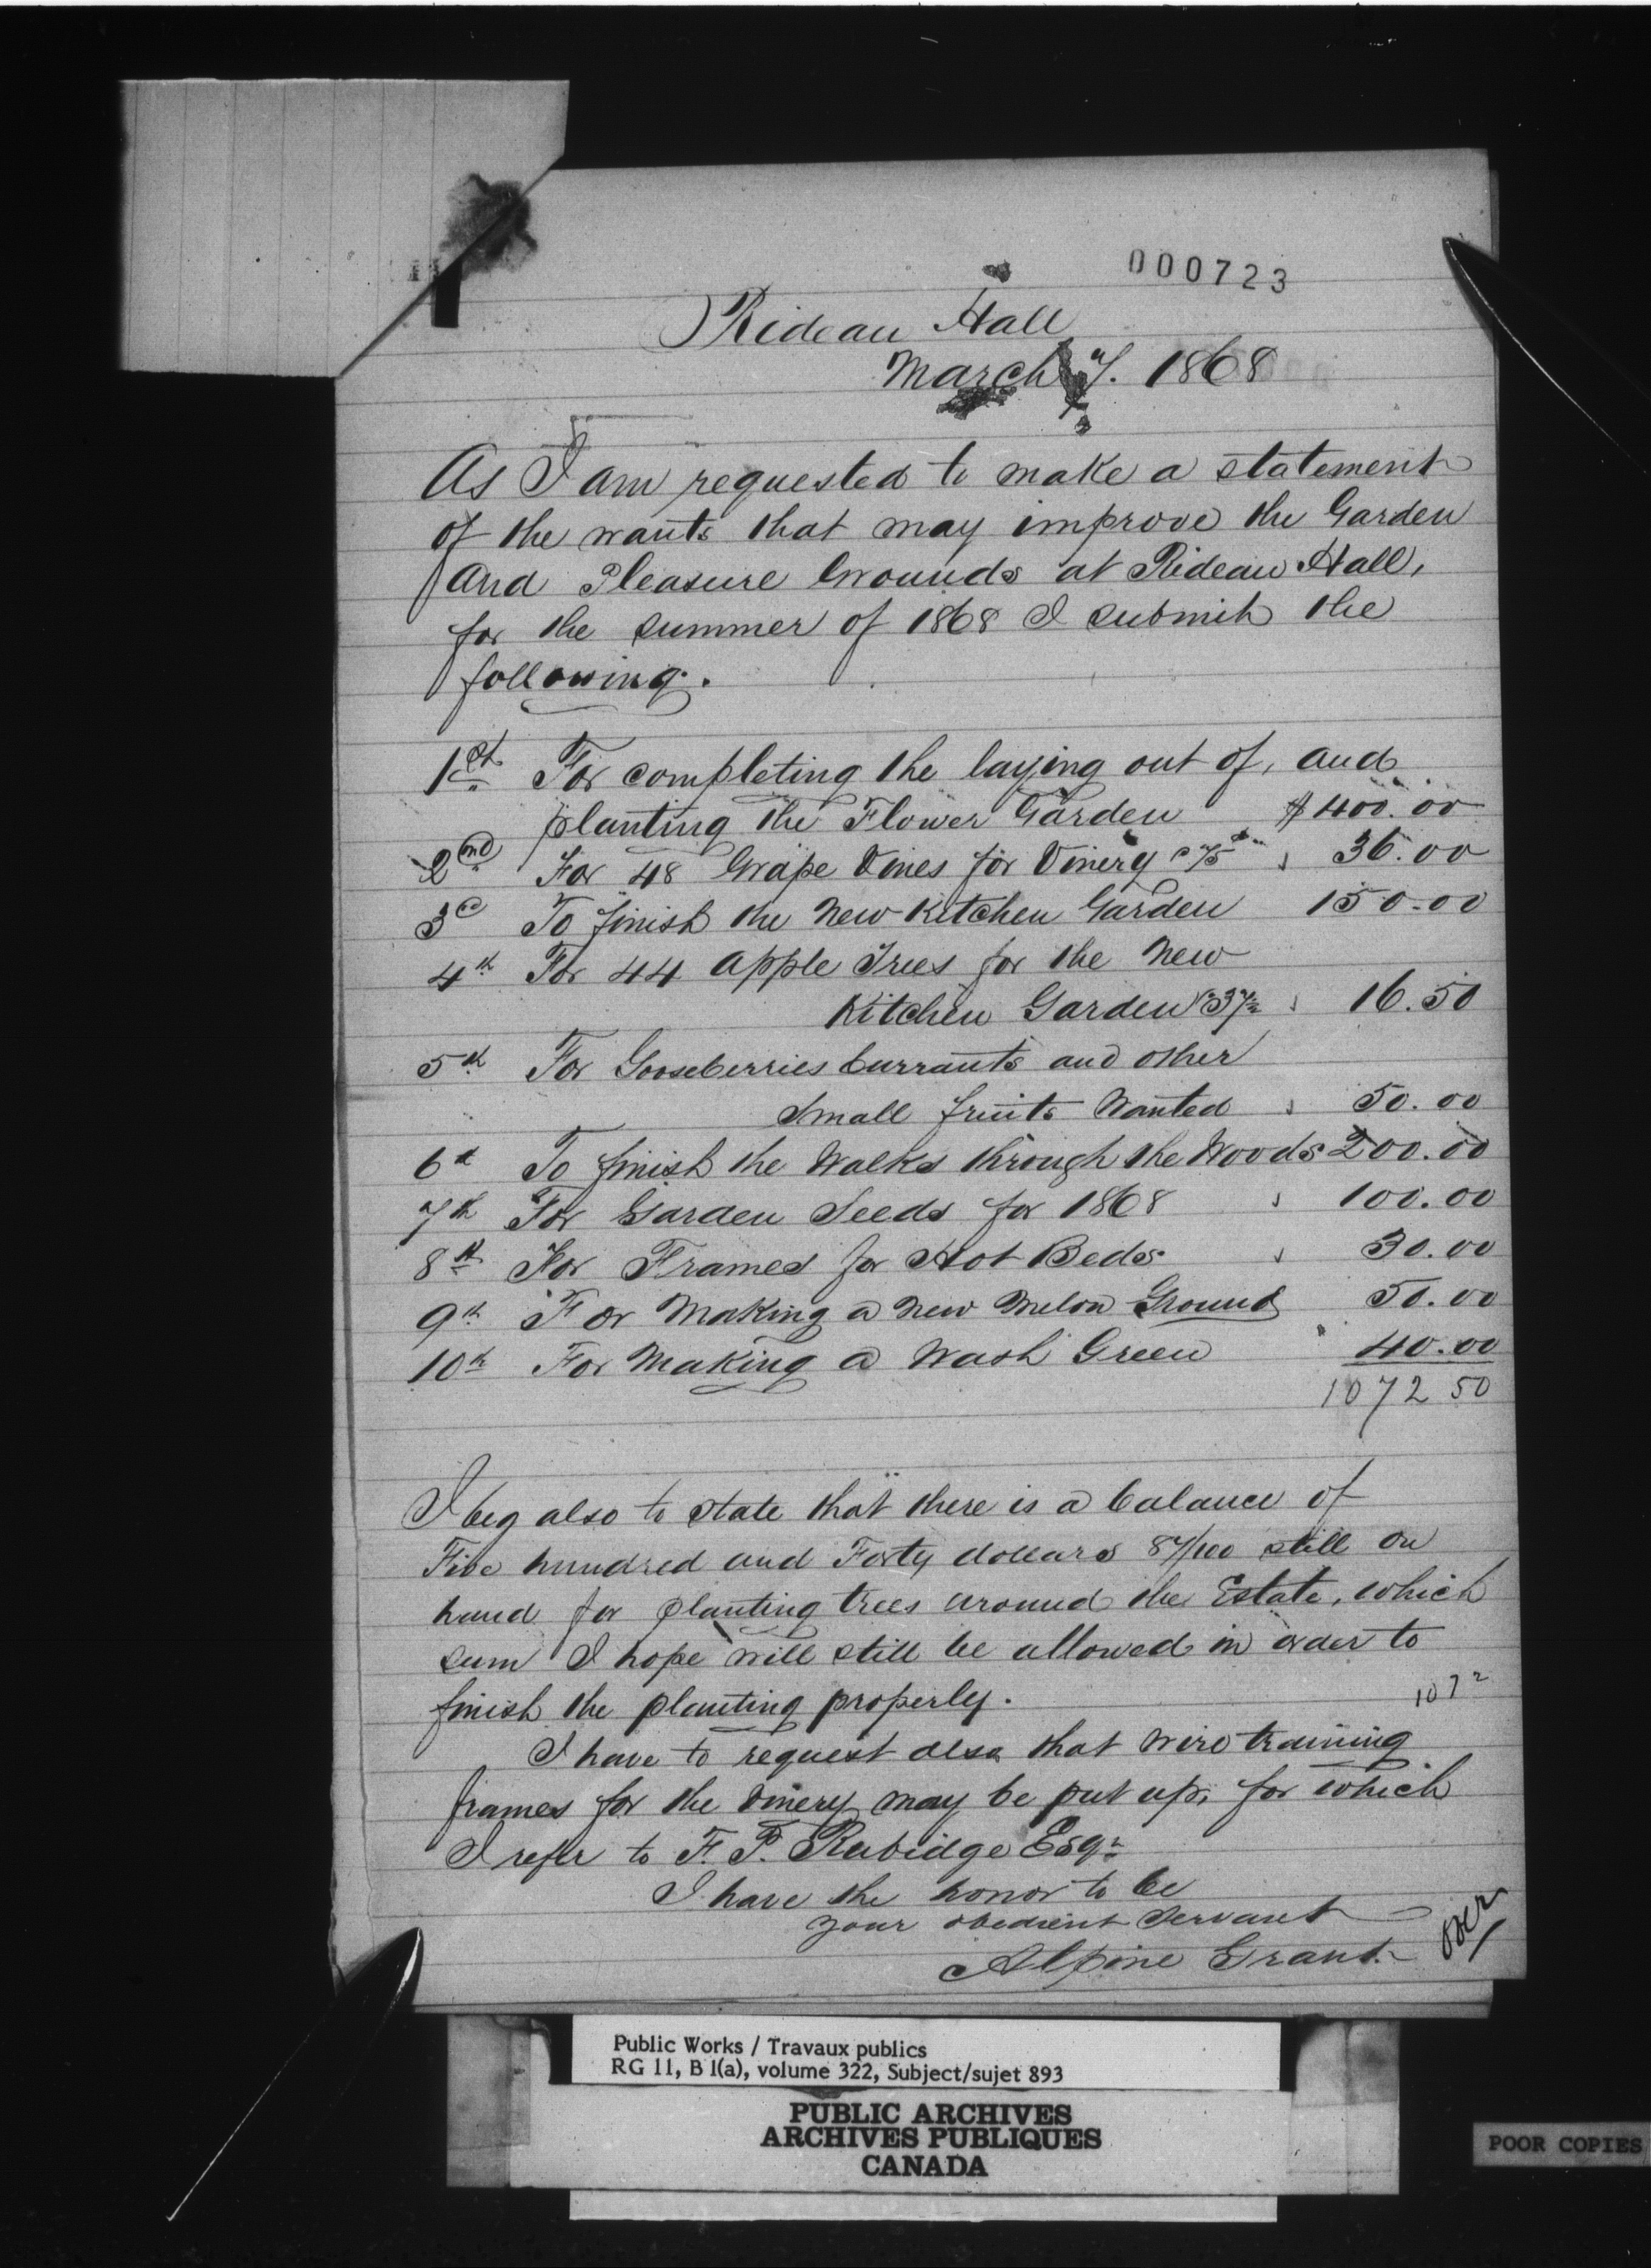 000723
Rideau Hall
March 7. 1868
As I am requested to make a statement
of the wants that may improve the Garden
And Pleasure Grounds at Rideau Hall,
for the summer of 1868 I submit the
following.
1st For completing the laying out of, and
planting the Flower Garden $400.00
2nd For 48 Grape Vines for Vinery @ 75 " 36.00
3d To finish the New Kitchen Garden 150.00
4th For 44 Apple Trees for the New
Kitchen Garden @ 37½ " 16.50
5th For Gooseberries Currants and other
Small fruits Wanted " 50.00
6th To finish the Walks through the Woods 200.00
7th For Garden Seeds for 1868 " 100.00
8th For Frames for Hot Beds " 30.00
9th For Making a New Melon Ground 50.00
10th For Making a Wash Green " 40.00
1072 50
I beg also to state that there is a balance of
Five hundred and Forty dollars 87/100 still on
hand for planting trees around the Estate, which
sum I hope will still be allowed in order to
finish the planting properly.
1072
I have to request also that wire training
frames for the Vinery may be put up, for which
I refer to F. P. Rubidge Esqr
I have the honor to be
your obedient Servant
Alpine Grant.
over
Public Works / Travaux publics
RG 11, B 1(a), volume 322, Subject/sujet 893
PUBLIC ARCHIVES
ARCHIVES PUBLIQUES
CANADA
POOR COPIES